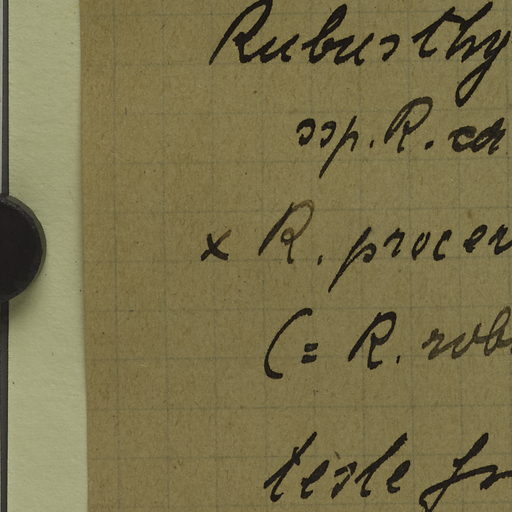 Rubus thy
ssp. R. ca
x R. procer
(= R. rob
teste fr